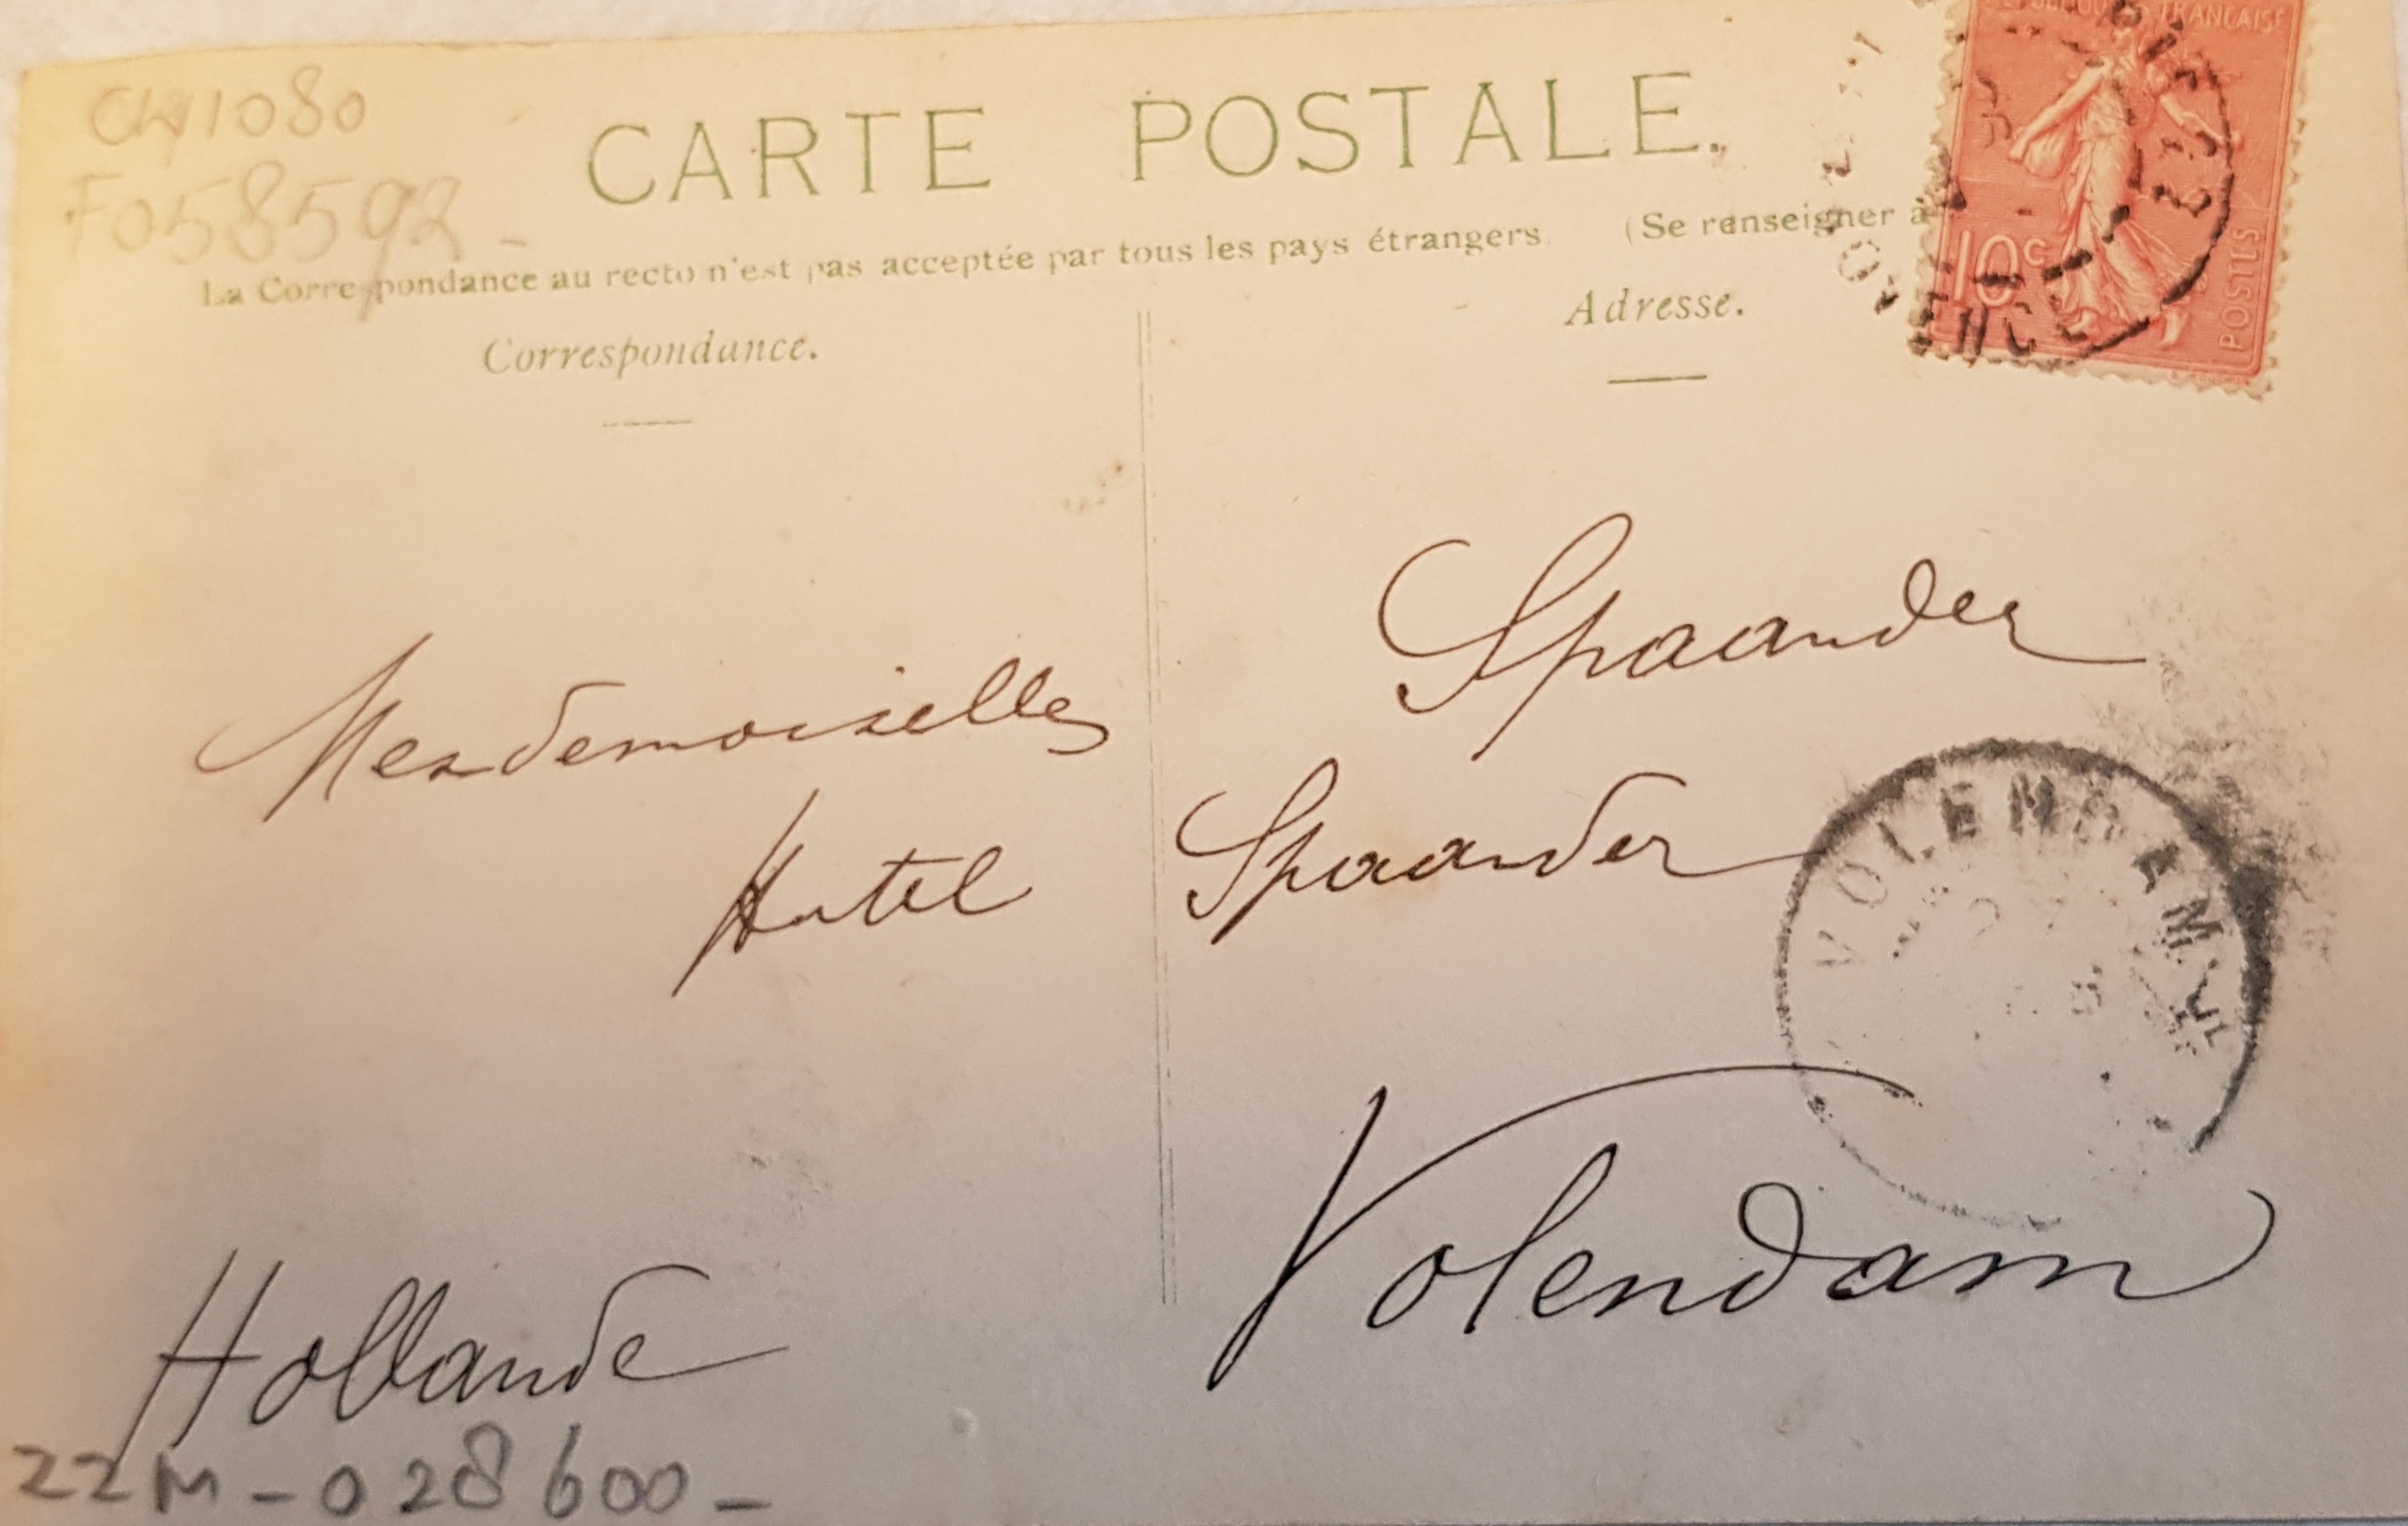 CARTE POSTALE.
La Correspondance au recto n'est pas acceptée par tous les pays étrangers. (Se renseigner à
Correspondance.
Adresse.
FRANCAISE
10c
POSTES
Mesdemoiselles Spaander
Hotel Spaander
VOLENDAM
Volendam
Hollande
F058592 -
22M - 028600 -